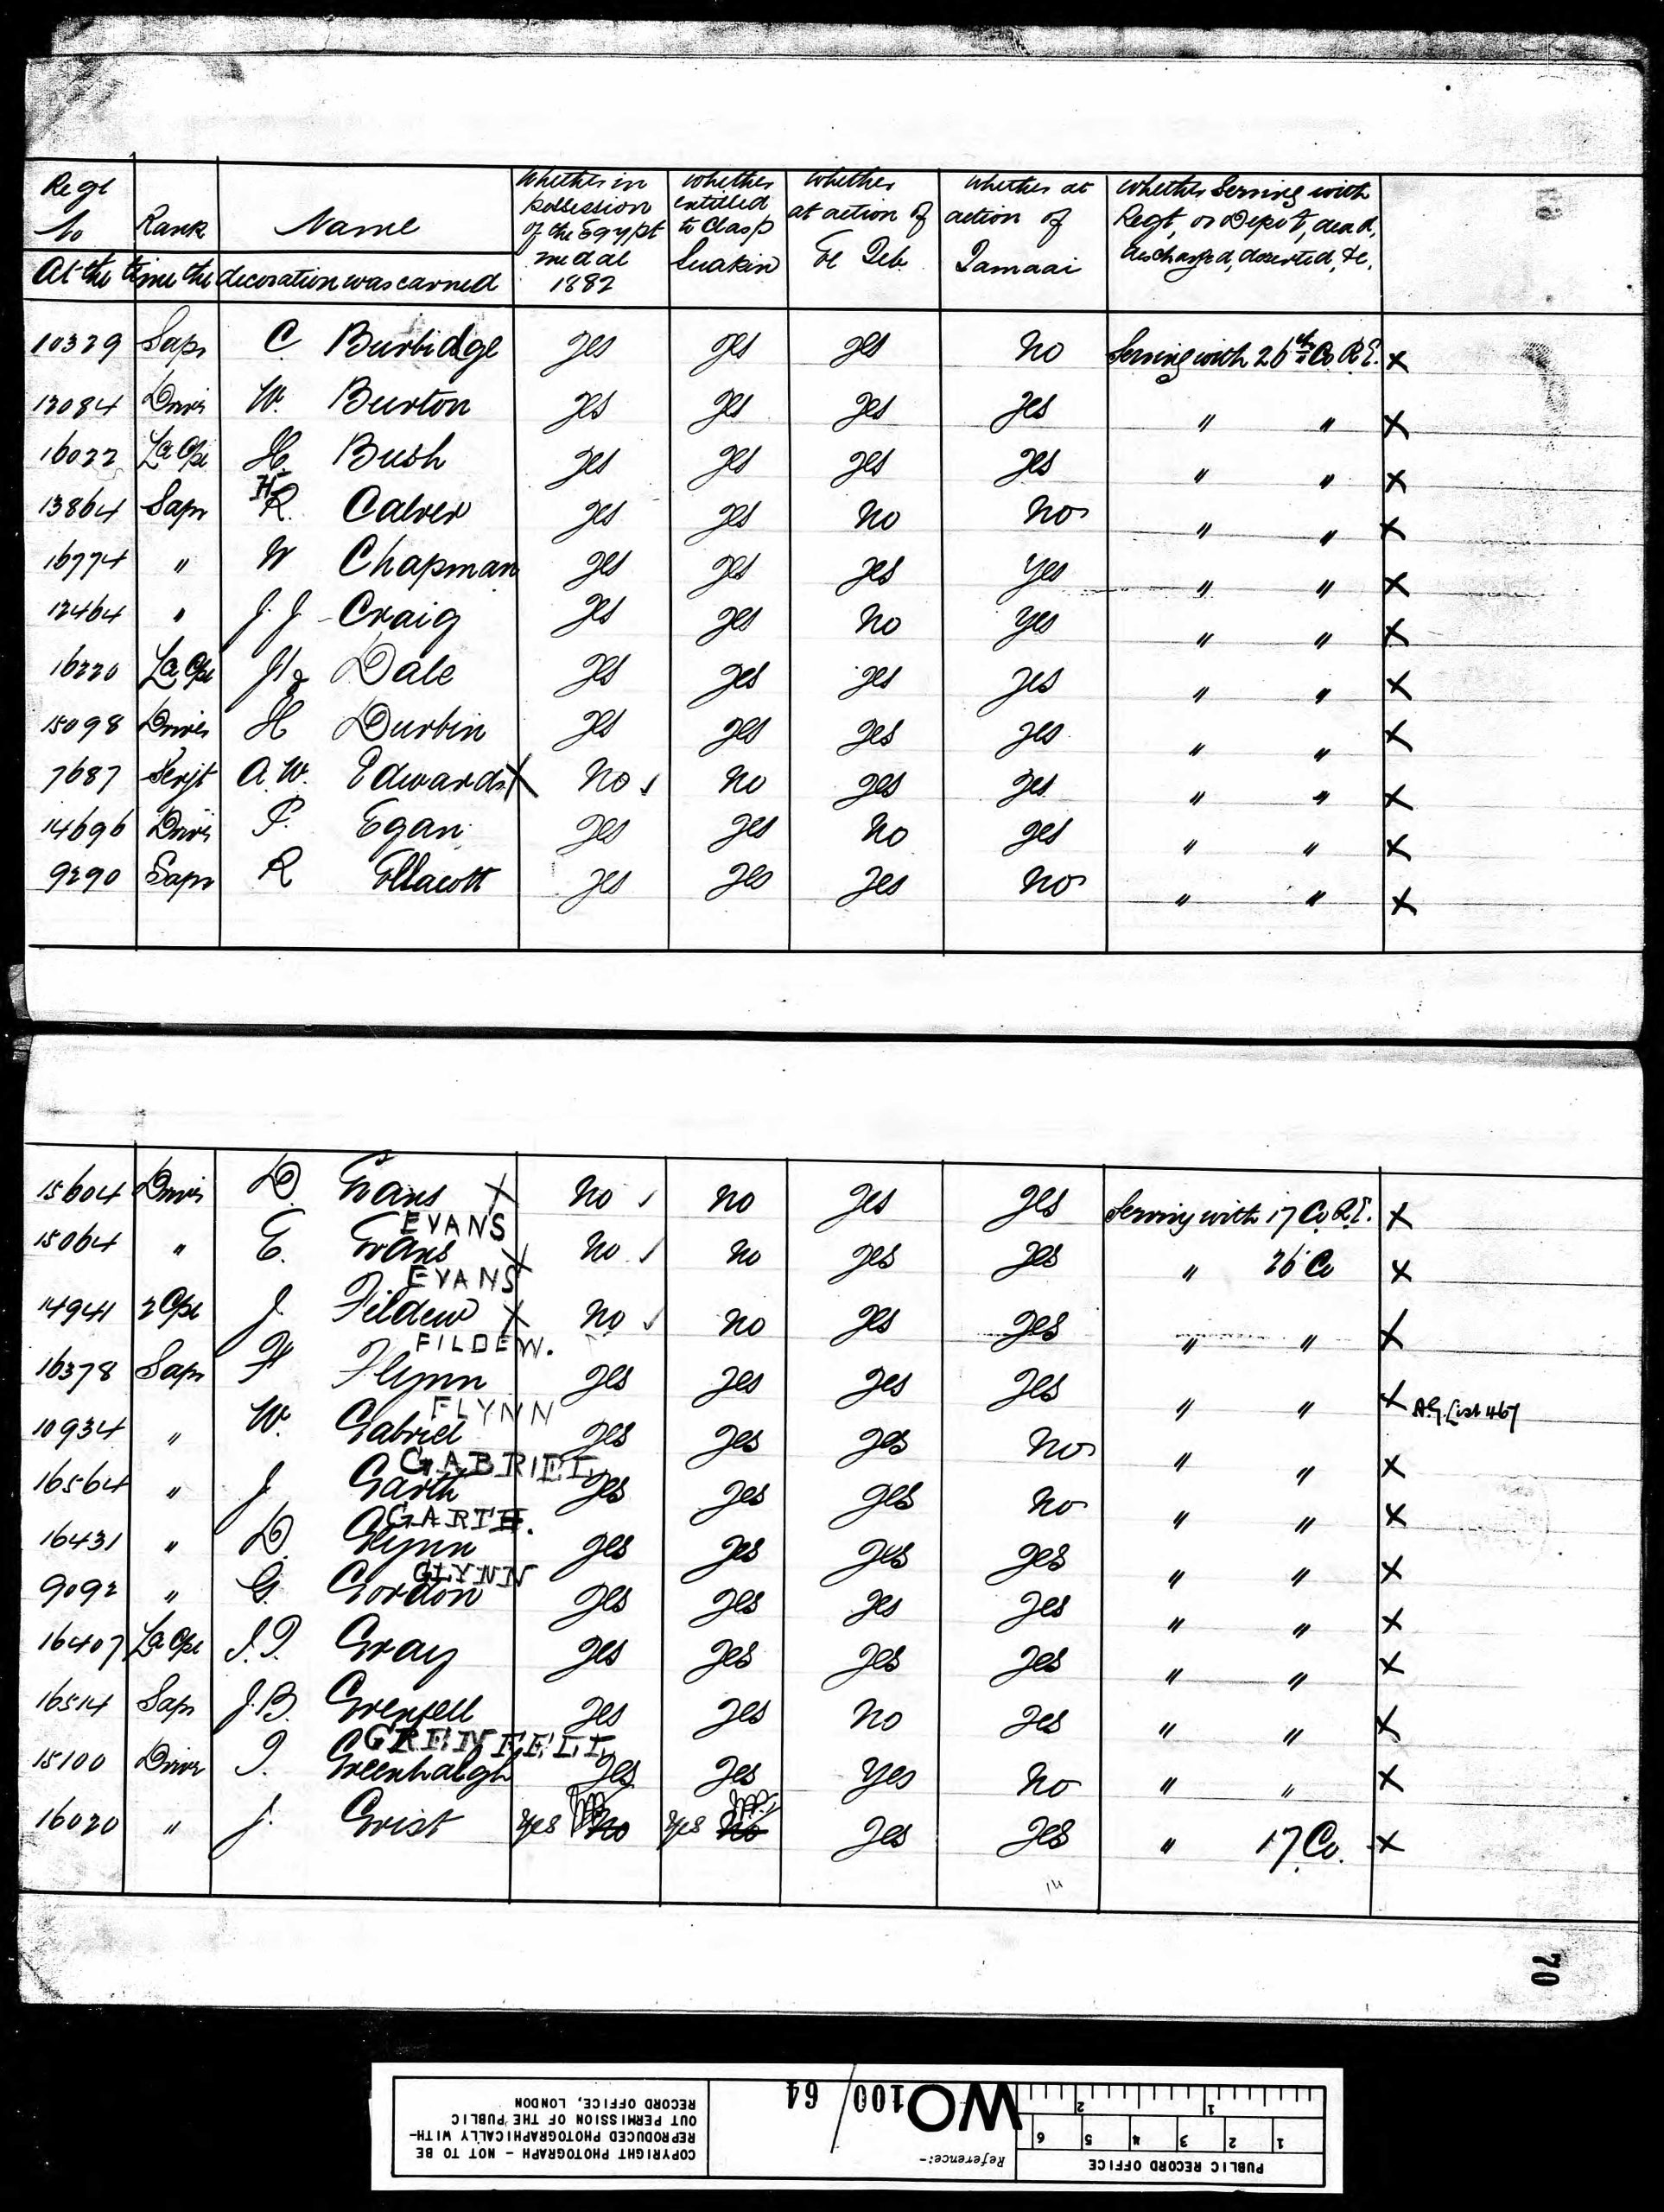 Regl No Rank Name Whether in possession of the Egypt medal 1882 Whether entitled to Clasp Suakin Whether at action of El Teb Whether at action of Tamaai Whether Serving with Regt, or Depot, dead, discharged, deserted, &c.
At the time the decoration was earned
10329 Sapr C Burbidge yes yes yes No Serving with 26th Co R.E. X
12084 Driver W. Burton yes yes yes yes " " X
16022 La Cpl H. Bush yes yes yes yes " " X
13864 Sapr H. R. Calver yes yes No No " " X
16774 " W Chapman yes yes yes yes " " X
12464 " J. J. Craig yes yes No yes " " X
16220 La Cpl Dale yes yes yes yes " " X
15098 Driver H Durbin yes yes yes yes " " X
7687 Serjt A. W. Edwards X No ✓ No yes yes " " X
14696 Driver P. Egan yes yes No yes " " X
9290 Sapr R Ellacott yes yes yes No " " X
15604 Driver D. Evans X No ✓ No yes yes Serving with 17 Co R.E. X
EVANS
15064 " E. Evans X No ✓ No yes yes " 26 Co X
EVANS
14941 2 Cpl J. Fildew X No ✓ No yes yes " " X
FILDEW.
16378 Sapr Flynn yes yes yes yes " " X A.G. List 467
FLYNN
10934 " W. Gabriel yes yes yes No " " X
GABRIEL
16564 " J Garth yes yes yes No " " X
GARTH.
16431 " D. Glynn yes yes yes yes " " X
GLYNN
9092 " G. Gordon yes yes yes yes " " X
16407 La Cpl Gray yes yes yes yes " " X
16514 Sapr J. B. Grenfell yes yes No yes " " X
GRENFELL
15100 Driver Greenhalgh yes yes yes No " " X
16020 " J. Grist yes No yes No yes yes " 17 Co. X
14
70
PUBLIC RECORD OFFICE
1 2 3 4 5 6
1 2
Reference:-
WO 100 / 64
COPYRIGHT PHOTOGRAPH - NOT TO BE
REPRODUCED PHOTOGRAPHICALLY WITH-
OUT PERMISSION OF THE PUBLIC
RECORD OFFICE, LONDON